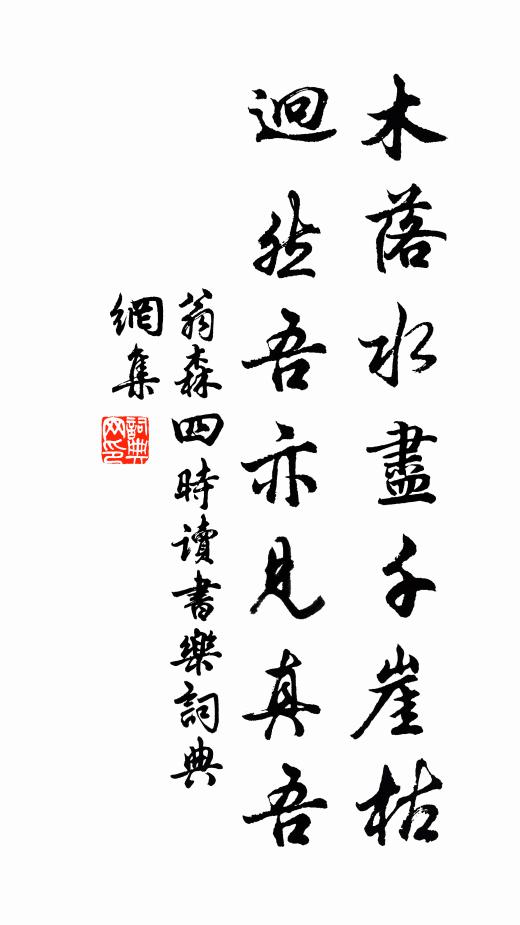 木落水盡千崖枯
迥然吾亦見真吾
翁森四時讀書樂詞典
網集
詞典
網印